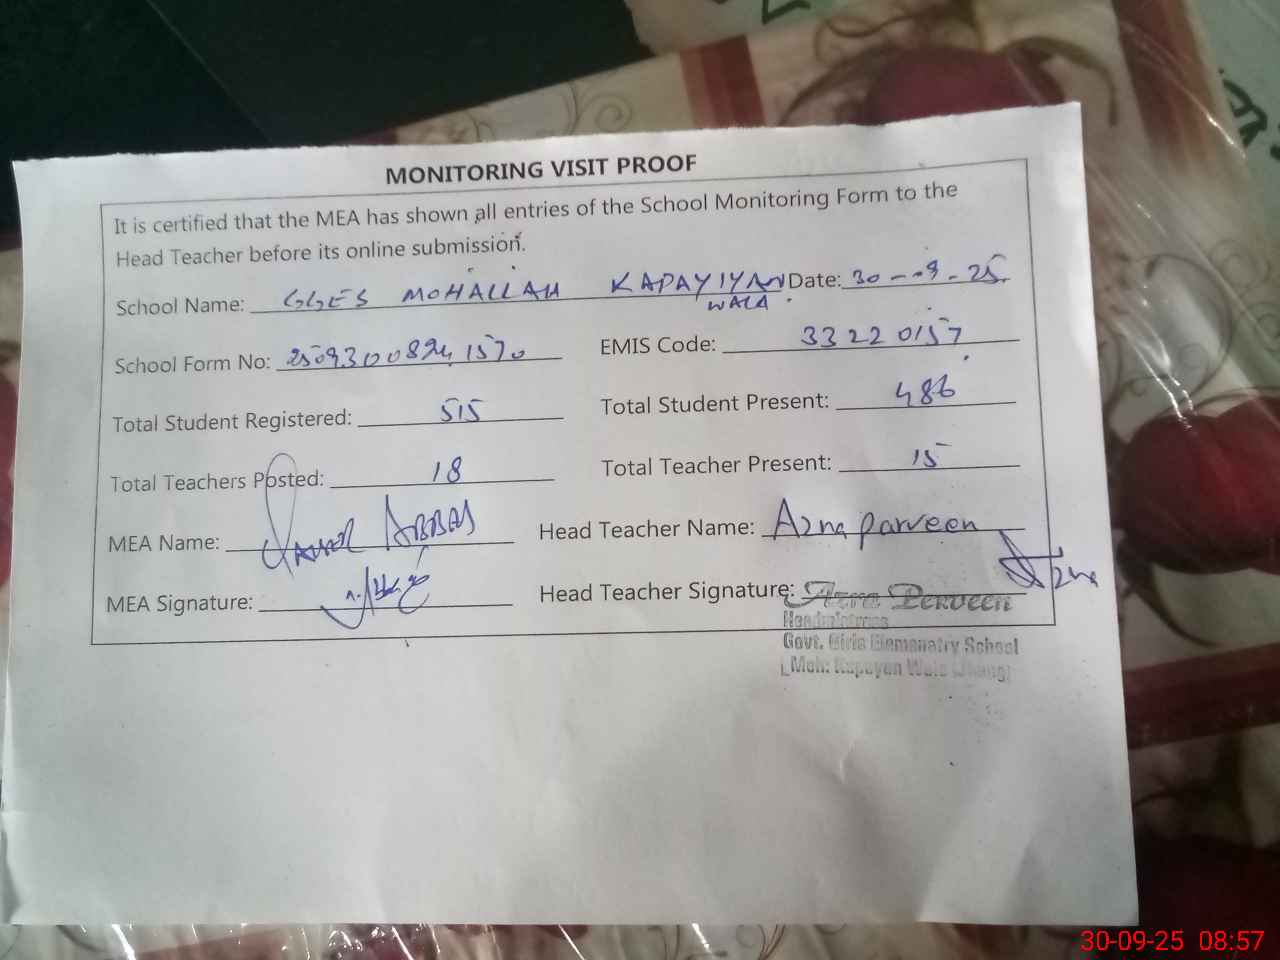 MONITORING VISIT PROOF
It is certified that the MEA has shown all entries of the School Monitoring Form to the
Head Teacher before its online submission.
School Name: GGES MOHALLAH KAPAYIYAN WALA Date: 30-09-25
School Form No: 2509300824 1570 EMIS Code: 33220157
Total Student Registered: 515 Total Student Present: 486
Total Teachers Posted: 18 Total Teacher Present: 15
MEA Name: ABBAS Head Teacher Name: Azra parveen
MEA Signature: Head Teacher Signature: Azra
Azra Perveen
Headmistress
Govt. Girls Elemanatry School
Moh: Kapayan Wala (Jhang)
30-09-25 08:57